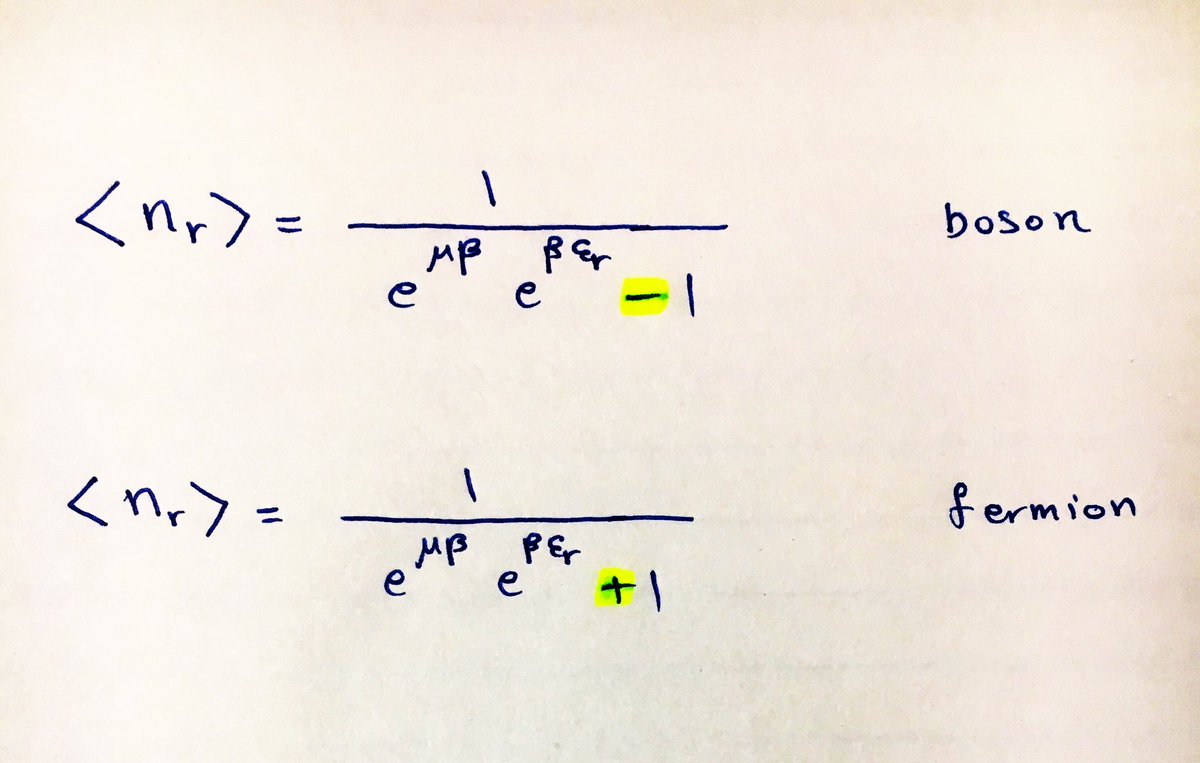 <n_r> = 1 / (e^{μβ} e^{βε_r} − 1) boson
<n_r> = 1 / (e^{μβ} e^{βε_r} + 1) fermion